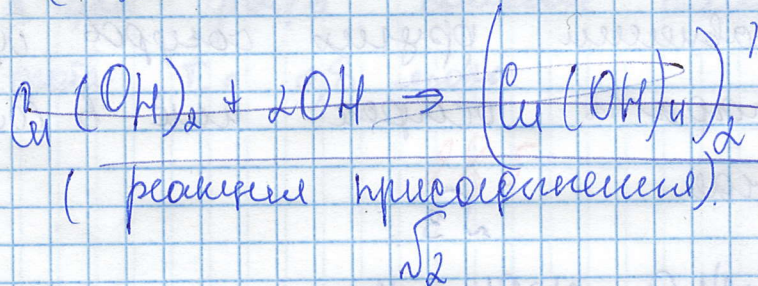 Cu(OH)₂ + 2OH → (Cu(OH)₄)₂
(реакция присоединения).
√2